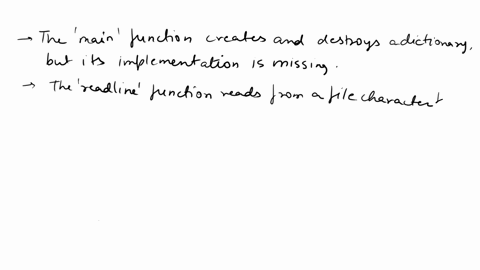 → The 'main' function creates and destroys a dictionary,
but its implementation is missing.
→ The 'readline' function reads from a file character